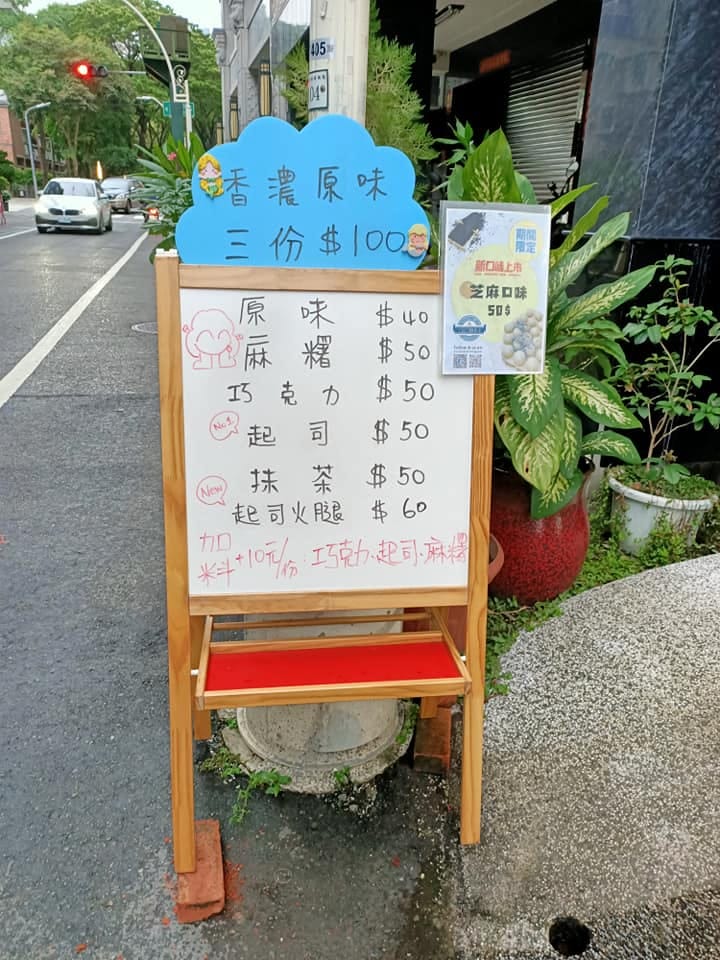 405
香濃原味
三份$100
期間
限定
新口味上市
芝麻口味
50$
原味 $40
麻糬 $50
巧克力 $50
No.1
起司 $50
抹茶 $50
New
起司火腿 $60
加料+10元/份:巧克力、起司、麻糬